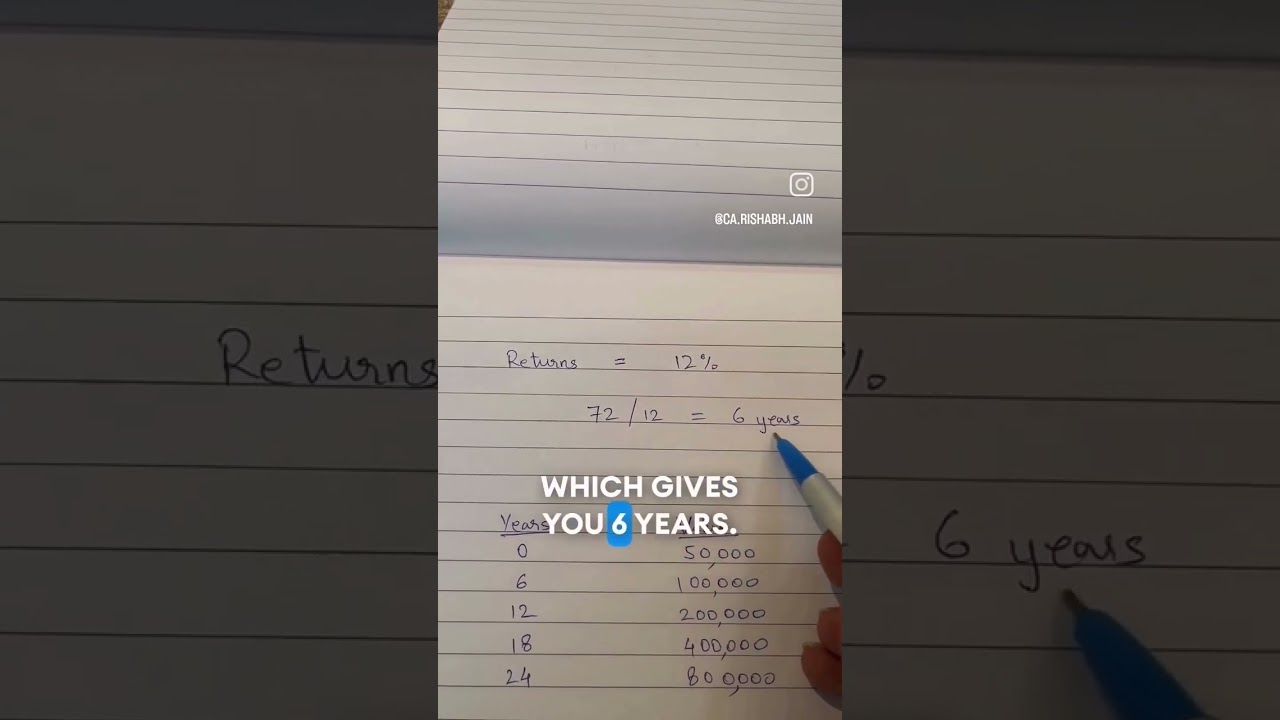 @CA.RISHABH.JAIN
Returns = 12%
72/12 = 6 years
WHICH GIVES
YOU 6 YEARS.
Years
0 50,000
6 100,000
12 200,000
18 400,000
24 800,000
Returns
%
6 years